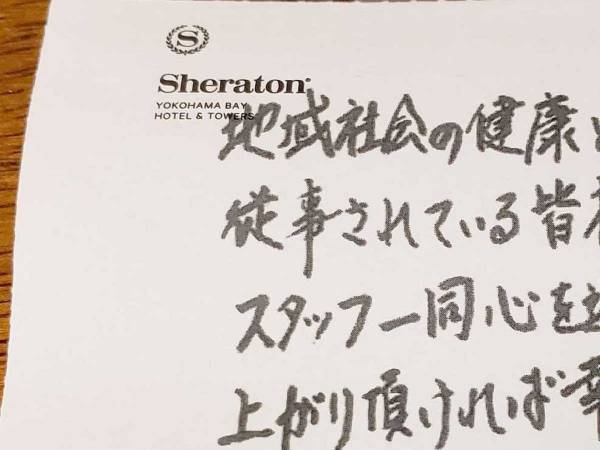 S
Sheraton
YOKOHAMA BAY
HOTEL & TOWERS
地域社会の健康
従事されている皆
スタッフ一同心を
上がり頂ければ幸